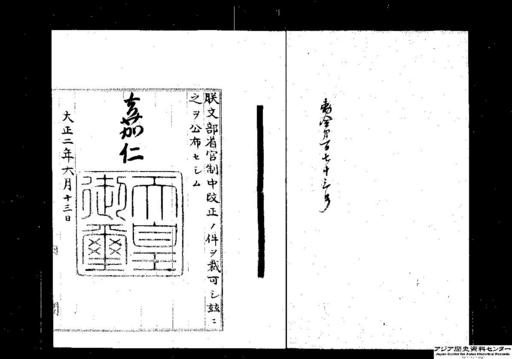 勅令第百七十三号
朕文部省官制中改正ノ件ヲ裁可シ玆ニ
之ヲ公布セシム
嘉仁
天皇
御璽
大正二年六月十三日
アジア歴史資料センター
Japan Center for Asian Historical Records